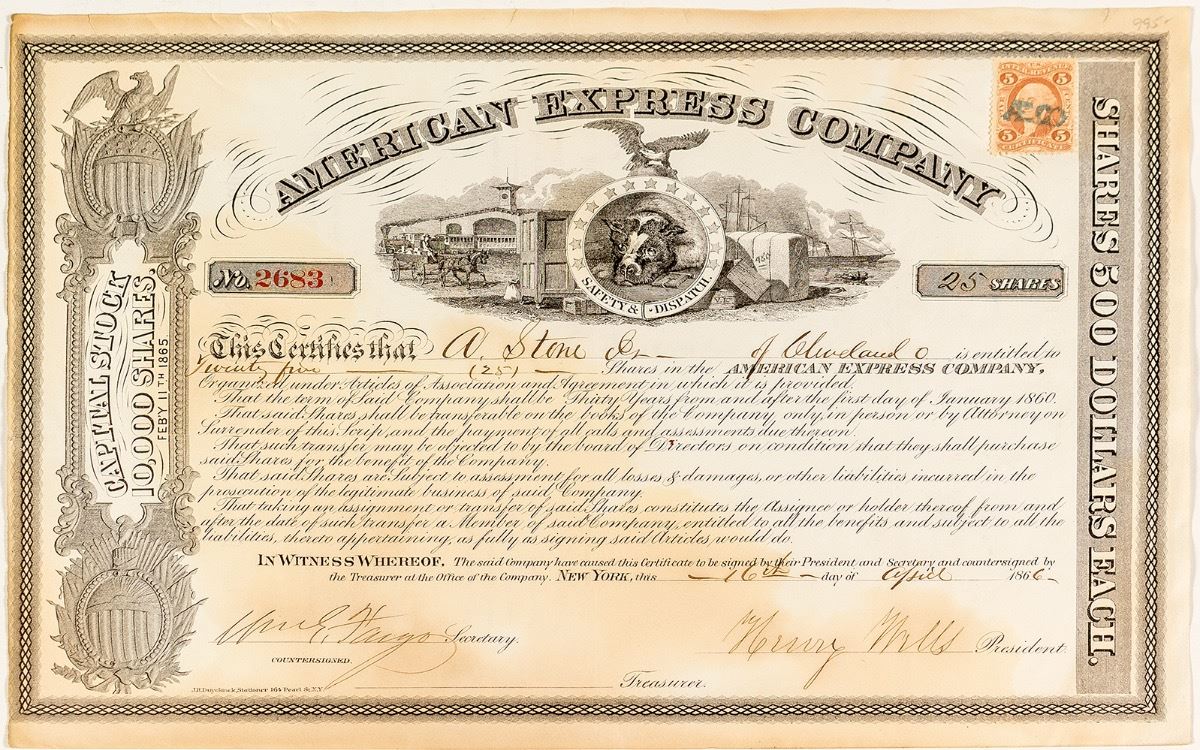 995-
AMERICAN EXPRESS COMPANY
5 5
CERTIFICATE
5 5
SHARES 500 DOLLARS EACH.
CAPITAL STOCK
10,000 SHARES.
FEBY 11TH 1865.
No. 2683
SAFETY & DISPATCH
25 SHARES
This Certifies that A. Stone Jr of Cleveland O is entitled to
Twenty five (25) Shares in the AMERICAN EXPRESS COMPANY.
Organized under Articles of Association and Agreement in which it is provided.
That the term of Said Company shall be Thirty Years from and after the first day of January 1860.
That said Shares shall be transferable on the books of the Company only, in person or by Attorney on
Surrender of this Scrip, and the payment of all calls and assessments due thereon.
That such transfer may be objected to by the board of Directors on condition that they shall purchase
said Shares for the benefit of the Company.
That said Shares are Subject to assessment for all losses & damages, or other liabilities incurred in the
prosecution of the legitimate business of said Company.
That taking an assignment or transfer of said Shares constitutes the Assignee or holder thereof from and
after the date of such transfer a Member of said Company, entitled to all the benefits and subject to all the
liabilities, thereto appertaining, as fully as signing said Articles, would do.
IN WITNESS WHEREOF, The said Company have caused this Certificate to be signed by their President and Secretary and countersigned by
the Treasurer at the Office of the Company. NEW YORK, this 16th day of April 1866
Wm G. Fargo Secretary. Henry Wells President.
COUNTERSIGNED.
Treasurer.
J.R. Duyckinck, Stationer 164 Pearl St. N.Y.